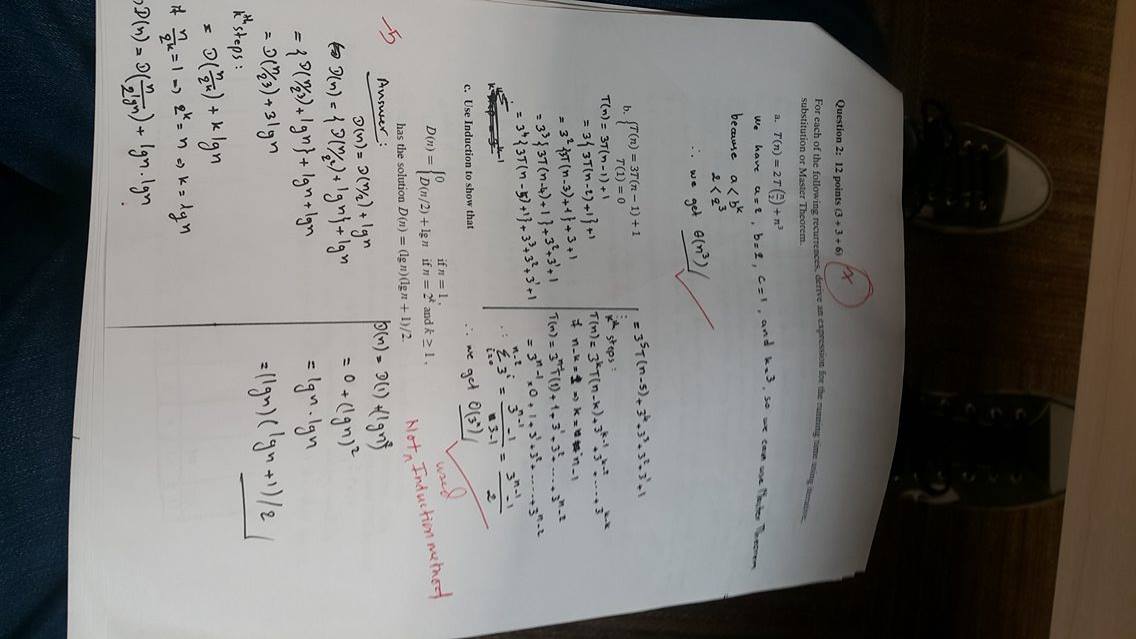 Question 2: 12 points (3 + 3 + 6)
For each of the following recurrences, derive an expression for the running time using iterative,
substitution or Master Theorem.
a. T(n) = 2T(n/2) + n³
We have a=2, b=2, c=1, and k=3, so we can use Master Theorem
because a < b^k
2 < 2³
∴ we get Θ(n³)
b. {T(n) = 3T(n − 1) + 1
T(1) = 0
T(n) = 3T(n-1)+1
= 3{3T(n-2)+1}+1
= 3²{3T(n-3)+1}+3+1
= 3³{3T(n-4)+1}+3²+3¹+1
= 3⁴{3T(n-5)+1}+3³+3²+3¹+1
= 3⁵T(n-5)+3⁴+3³+3²+3¹+1
⋮
kth steps:
T(n) = 3^k T(n-k)+3^(k-1)+3^(k-2)+.....+3^(k-k)
if n-k=1 ⇒ k= n-1
T(n) = 3^(n-1)T(1)+1+3¹+3².....+3^(n-2)
= 3^(n-1)×0+1+3¹+3²+.....+3^(n-2)
∴ Σ_(i=0)^(n-2) 3^i = (3^(n-1)-1)/(3-1) = (3^(n-1)-1)/2
∴ we get O(3^n)
c. Use Induction to show that
D(n) = {0 if n = 1,
D(n/2) + lg n if n = 2^k and k ≥ 1,
has the solution D(n) = (lg n)(lg n + 1)/2.
used
Not Induction method
-5
Answer:
D(n) = D(n/2) + lgn
D(n) = {D(n/2²) + lgn} + lgn
= {D(n/2³) + lgn} + lgn + lgn
= D(n/2³) + 3lgn
kth steps:
= D(n/2^k) + k lgn
if n/2^k = 1 ⇒ 2^k = n ⇒ k = lgn
D(n) = D(n/2^lgn) + lgn.lgn
D(n) = D(1) + (lgn)²
= 0 + (lgn)²
= lgn.lgn
= (lgn)(lgn+1)/2